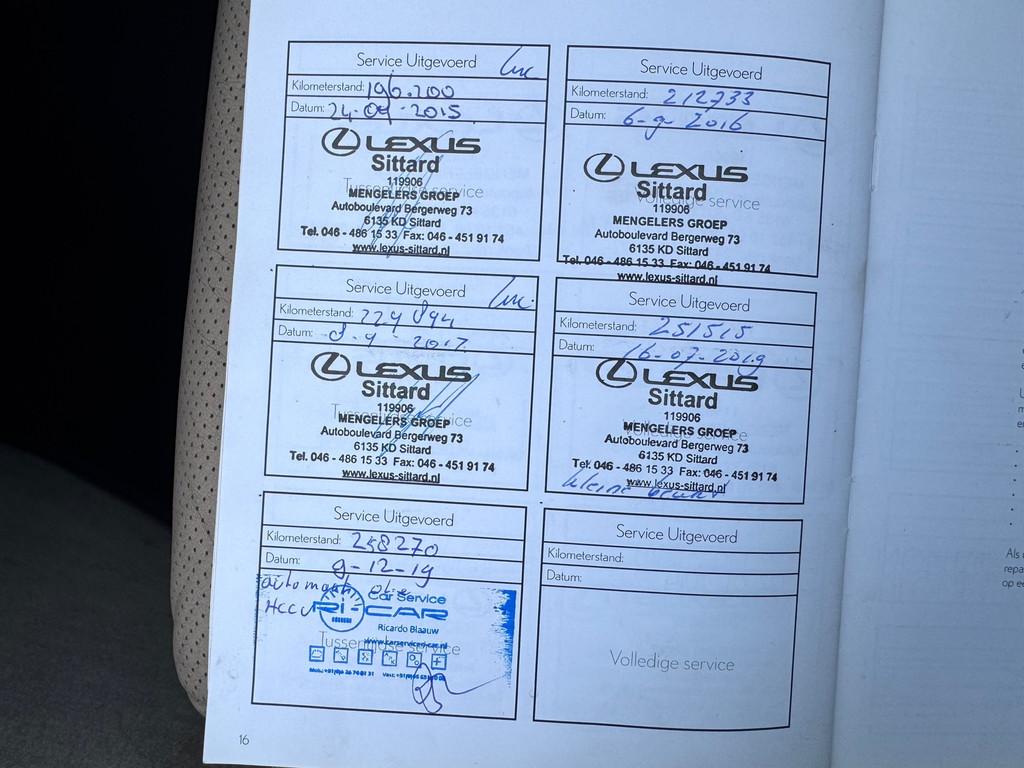 Service Uitgevoerd
Kilometerstand: 196.200
Datum: 24-09-2015
LEXUS
Sittard
119906
Tussentijdse service
MENGELERS GROEP
Autoboulevard Bergerweg 73
6135 KD Sittard
Tel. 046 - 486 15 33 Fax: 046 - 451 91 74
www.lexus-sittard.nl
Service Uitgevoerd
Kilometerstand: 212733
Datum: 6-9-2016
LEXUS
Sittard
Volledige service
119906
MENGELERS GROEP
Autoboulevard Bergerweg 73
6135 KD Sittard
Tel. 046 - 486 15 33 Fax: 046 - 451 91 74
www.lexus-sittard.nl
Service Uitgevoerd
Kilometerstand: 229894
Datum: 8-9-2017
LEXUS
Sittard
119906
Tussentijdse service
MENGELERS GROEP
Autoboulevard Bergerweg 73
6135 KD Sittard
Tel. 046 - 486 15 33 Fax: 046 - 451 91 74
www.lexus-sittard.nl
Service Uitgevoerd
Kilometerstand: 251515
Datum: 16-07-2019
LEXUS
Sittard
119906
Volledige service
MENGELERS GROEP
Autoboulevard Bergerweg 73
6135 KD Sittard
Tel. 046 - 486 15 33 Fax: 046 - 451 91 74
www.lexus-sittard.nl
kleine beurt
Service Uitgevoerd
Kilometerstand: 258270
Datum: 9-12-19
Car Service
Ri-CAR
Ricardo Blaauw
Tussentijdse service
Service Uitgevoerd
Kilometerstand:
Datum:
Volledige service
16
Als
repa
op e